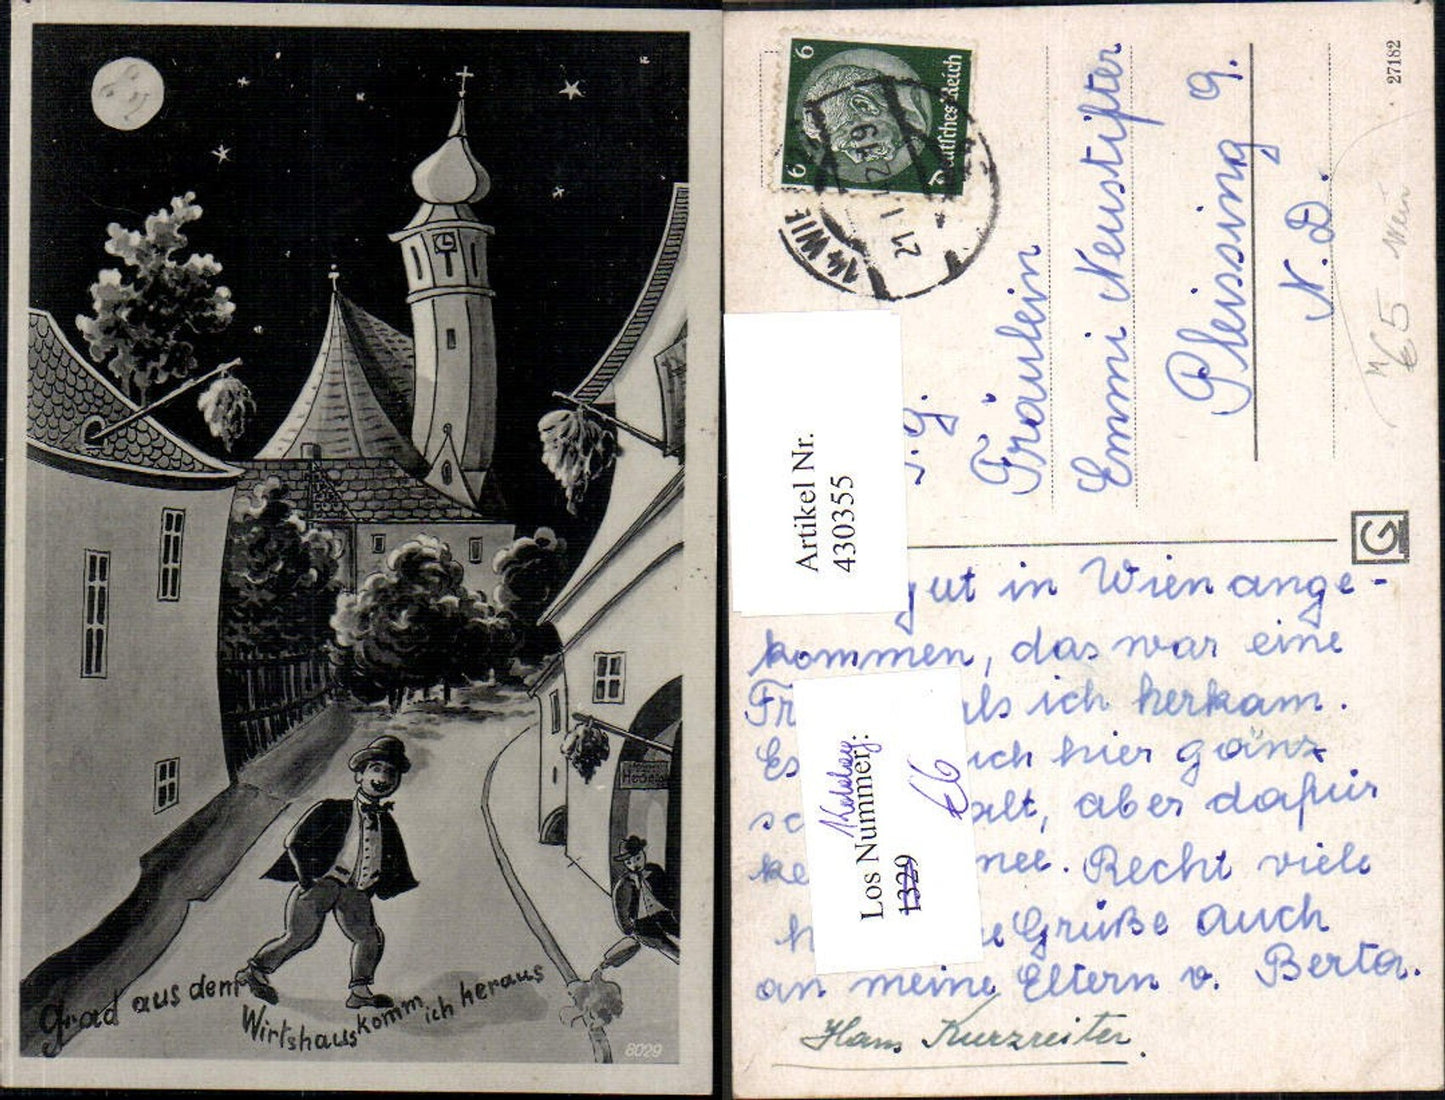 Grad aus dem
Wirtshaus komm ich heraus
8029
6
6
Deutsches Reich
21. I.
27182
Fräulein
Emmi Neustifter
Pleissing 9.
N.D.
€5
€6
G
Artikel Nr.
430355
Los Nummer:
1329
gut in Wien ange-
kommen, das war eine
als ich herkam.
Es ich hier ganz
alt, aber dafür
Recht viele
Grüße auch
an meine Eltern v. Berta.
Hans Kurzreiter.